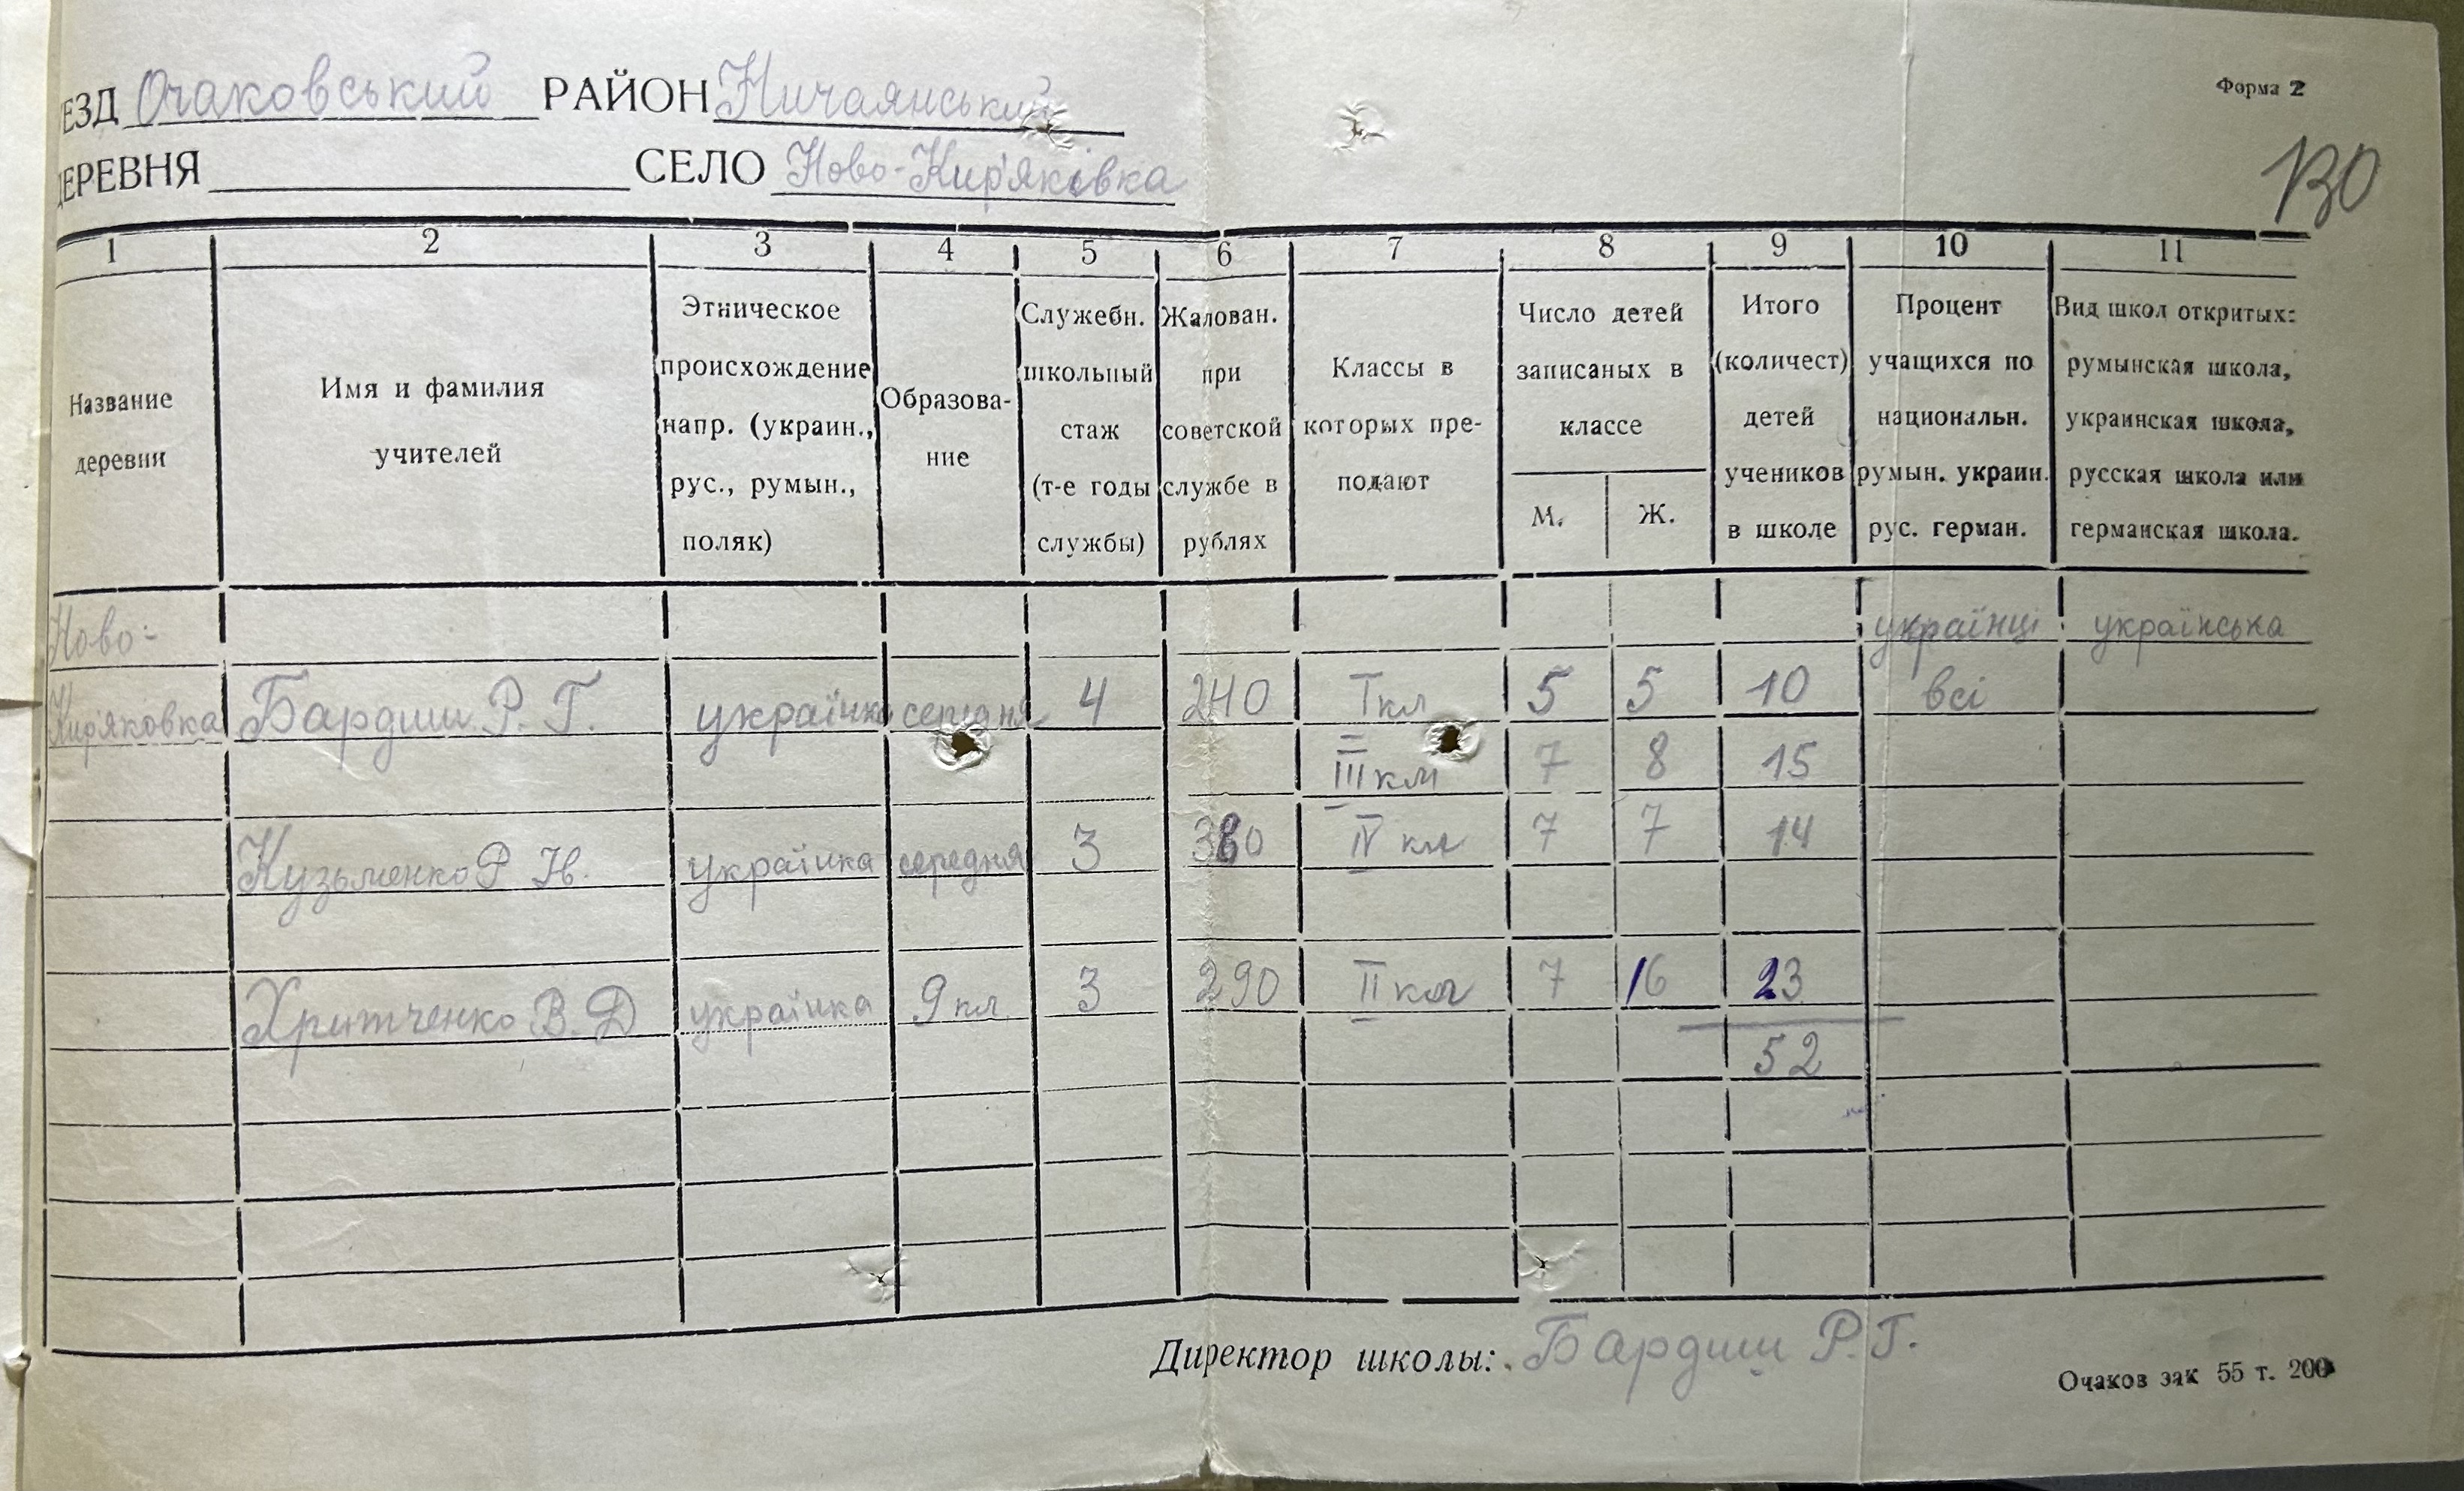 ЕЗД Очаковський РАЙОН Ничаянський
Форма 2
130
ЕРЕВНЯ СЕЛО Ново-Кир'яківка
1 2 3 4 5 6 7 8 9 10 11
Название деревни
Имя и фамилия учителей
Этническое происхождение напр. (украин., рус., румын., поляк)
Образова-ние
Служебн. школьный стаж (т-е годы службы)
Жалован. при советской службе в рублях
Классы в которых пре-подают
Число детей записаных в классе
М. Ж.
Итого (количест) детей учеников в школе
Процент учащихся по национальн. румын. украин. рус. герман.
Вид школ откритых: румынская школа, украинская школа, русская школа или германская школа.
Ново- українці українська
Кир'яковка Бардиш Р. Г. українка середня 4 240 І кл 5 5 10 всі
ІІІ кл 7 8 15
Кузьменко Р Н. українка середня 3 380 IV кл 7 7 14
Хритченко В. Д українка 9 кл. 3 290 ІІ кл 7 16 23
52
Директор школы: Бардиш Р. Г.
Очаков зак 55 т. 200